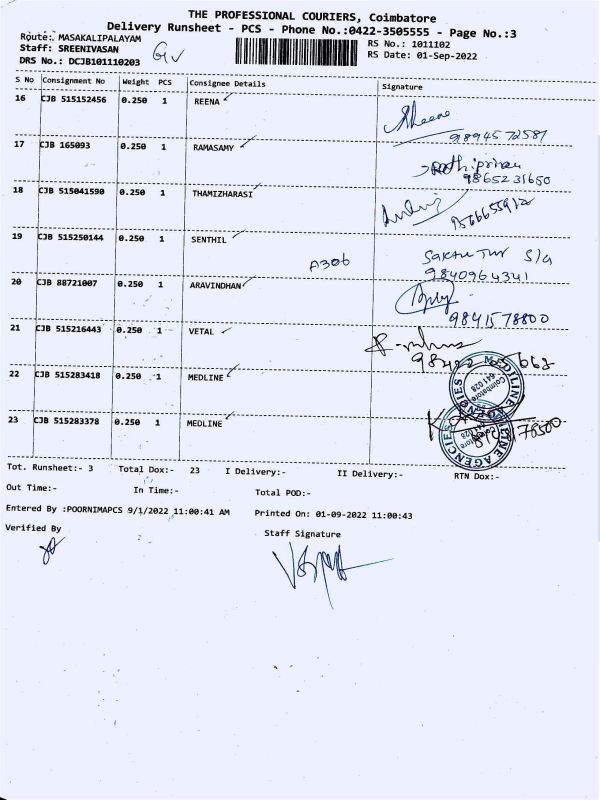 THE PROFESSIONAL COURIERS, Coimbatore
Delivery Runsheet - PCS - Phone No.:0422-3505555 - Page No.:3
Route:. MASAKALIPALAYAM
Staff: SREENIVASAN
DRS No.: DCJB101110203
RS No.: 1011102
RS Date: 01-Sep-2022
S No Consignment No Weight PCS Consignee Details Signature
16 CJB 515152456 0.250 1 REENA
9894572581
17 CJB 165093 0.250 1 RAMASAMY
9865231650
18 CJB 515041590 0.250 1 THAMIZHARASI
19 CJB 515250144 0.250 1 SENTHIL
A306
9840964341
20 CJB 88721007 0.250 1 ARAVINDHAN
9841578800
21 CJB 515216443 0.250 1 VETAL
22 CJB 515283418 0.250 1 MEDLINE
MEDILINE AGENCIES
Coimbatore
641 028
23 CJB 515283378 0.250 1 MEDLINE
Tot. Runsheet:- 3 Total Dox:- 23 I Delivery:- II Delivery:- RTN Dox:-
Out Time:- In Time:- Total POD:-
Entered By :POORNIMAPCS 9/1/2022 11:00:41 AM Printed On: 01-09-2022 11:00:43
Verified By Staff Signature